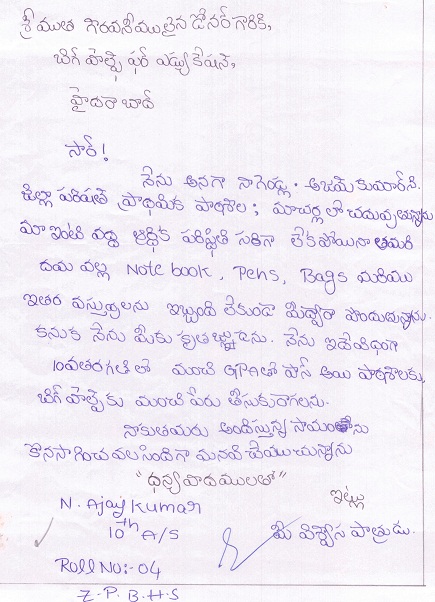 శ్రీయుత గౌరవనీయులైన డోనర్ గారికి,
బిగ్ హెల్ప్ ఫర్ ఎడ్యుకేషన్,
హైదరాబాద్
సార్!
నేను అనగా నాగెండ్ల. అజయ్ కుమార్ ని.
జిల్లా పరిషత్ ప్రాథమిక పాఠశాల; మాచర్ల లో చదువుతున్నాను
మా ఇంటి వద్ద ఆర్థిక పరిస్థితి సరిగా లేకపోయినా తమరి
దయ వల్ల Note book, Pens, Bags మరియు
ఇతర వస్తువులను ఇబ్బంది లేకుండా మీద్వారా పొందుతున్నాను.
కనుక నేను మీకు కృతజ్ఞుడను. నేను ఇదేవిధంగా
10వతరగతి లో మంచి GPAతో పాస్ అయి పాఠశాలకు,
బిగ్ హెల్ప్ కు మంచి పేరు తీసుకురాగలను.
నాకుతమరు అందిస్తున్న సాయంను
కొనసాగించవలసిందిగా మనవి చేయుచున్నాను
"ధన్యవాదములతో"
ఇట్లు
N. Ajay Kumar
10th A/S
మీ విశ్వాస పాత్రుడు.
Roll No:- 04
Z.P.B.H.S